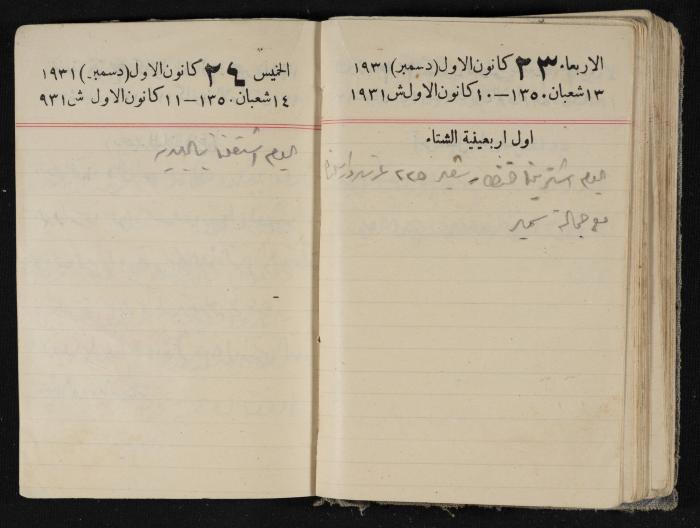 الاربعاء ٢٣ كانون الاول (دسمبر) ١٩٣١
١٣ شعبان ١٣٥٠ — ١٠ كانون الاول ش ١٩٣١
اول اربعينية الشتاء
اليوم اشترينا شعير ٢٢٥
مع جمالة سمير
الخميس ٢٤ كانون الاول (دسمبر) ١٩٣١
١٤ شعبان ١٣٥٠ — ١١ كانون الاول ش ٩٣١
اليوم اشتغلنا